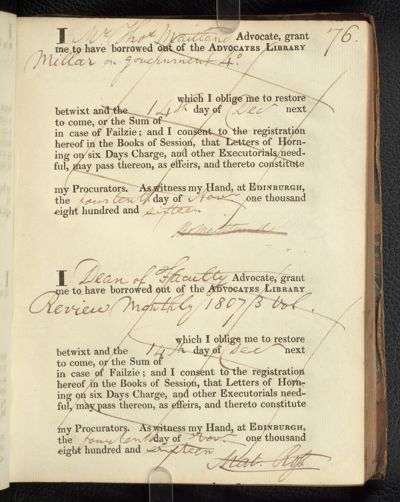 76.
I Mr Thos Maitland Advocate, grant
me to have borrowed out of the ADVOCATES LIBRARY
Millar on government 4o
which I oblige me to restore
betwixt and the 14th day of Dec next
to come, or the Sum of
in case of Failzie; and I consent to the registration
hereof in the Books of Session, that Letters of Horn-
ing on six Days Charge, and other Executorials need-
ful, may pass thereon, as effeirs, and thereto constitute
my Procurators. As witness my Hand, at EDINBURGH,
the fourteenth day of Nov one thousand
eight hundred and sixteen
I Dean of Faculty Advocate, grant
me to have borrowed out of the ADVOCATES LIBRARY
Review Monthly 1807/3 vol.
which I oblige me to restore
betwixt and the 14th day of Dec next
to come, or the Sum of
in case of Failzie; and I consent to the registration
hereof in the Books of Session, that Letters of Horn-
ing on six Days Charge, and other Executorials need-
ful, may pass thereon, as effeirs, and thereto constitute
my Procurators. As witness my Hand, at EDINBURGH,
the fourteenth day of Novr one thousand
eight hundred and sixteen